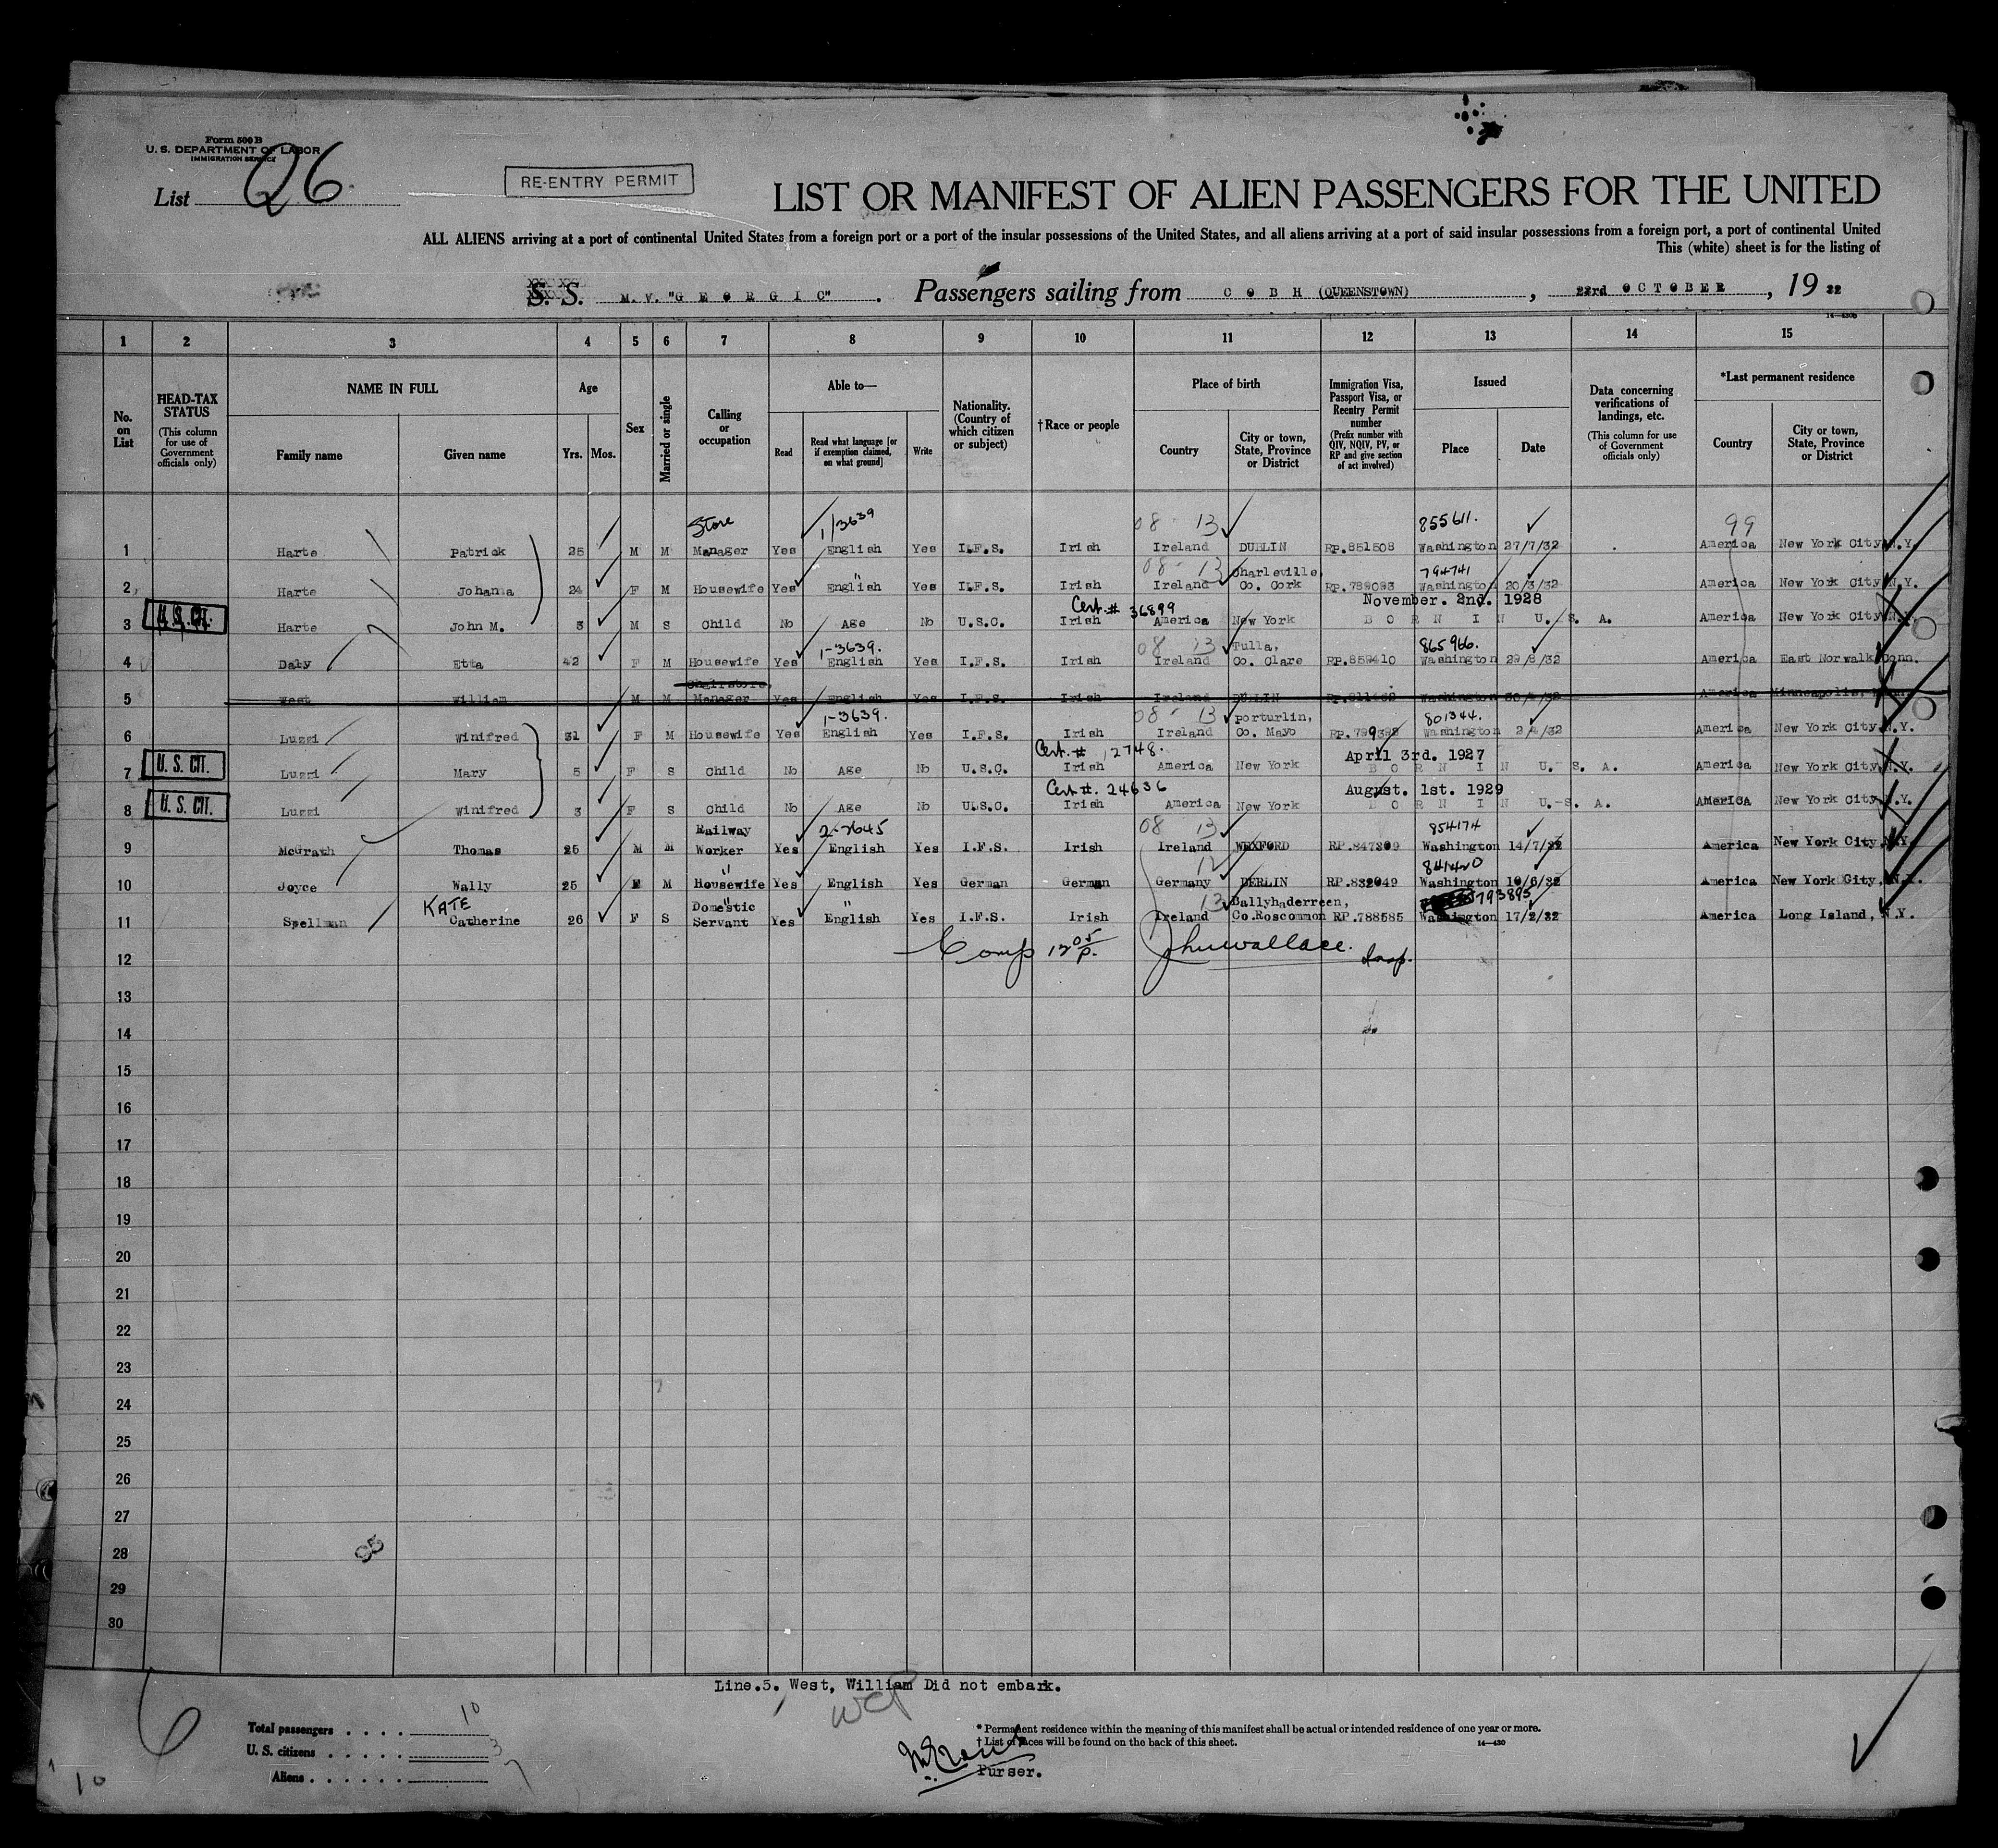 Form 500 B
U. S. DEPARTMENT OF LABOR
IMMIGRATION SERVICE
List 26
RE-ENTRY PERMIT
LIST OR MANIFEST OF ALIEN PASSENGERS FOR THE UNITED
ALL ALIENS arriving at a port of continental United States from a foreign port or a port of the insular possessions of the United States, and all aliens arriving at a port of said insular possessions from a foreign port, a port of continental United
This (white) sheet is for the listing of
S. S. M. V. "GEORGIC" . Passengers sailing from COBH (QUEENSTOWN) , 23rd OCTOBER , 19 32
1 2 3 4 5 6 7 8 9 10 11 12 13 14 15
No. on List
HEAD-TAX STATUS (This column for use of Government officials only)
NAME IN FULL
Family name Given name
Age Yrs. Mos.
Sex
Married or single
Calling or occupation
Able to—
Read Read what language [or if exemption claimed, on what ground] Write
Nationality. (Country of which citizen or subject)
†Race or people
Place of birth
Country City or town, State, Province or District
Immigration Visa, Passport Visa, or Reentry Permit number (Prefix number with QIV, NQIV, PV, or RP and give section of act involved)
Issued
Place Date
Data concerning verifications of landings, etc. (This column for use of Government officials only)
*Last permanent residence
Country City or town, State, Province or District
Store 1/3639 08 - 13 855611. 99
1 Harte Patrick 25 M M Manager Yes English Yes I.F.S. Irish Ireland DUBLIN RP.851508 Washington 27/7/32 America New York City, N.Y.
08 - 13 Charleville, 794741
2 Harte Johanna 24 F M Housewife Yes English Yes I.F.S. Irish Ireland Co. Cork RP.789093 Washington 20/3/32 America New York City, N.Y.
Cert. # 36899 November. 2nd. 1928
3 U.S. CIT. Harte John M. 3 M S Child No Age No U.S.C. Irish America New York BORN IN U.S.A. America New York City, N.Y.
1-3639. 08 13 Tulla, 865966.
4 Daly Etta 42 F M Housewife Yes English Yes I.F.S. Irish Ireland Co. Clare RP.859410 Washington 29/8/32 America East Norwalk Conn.
5 West William M M Manager Yes English Yes I.F.S. Irish Ireland DUBLIN Washington 30/4/32 America Minneapolis,
1-3639. 08 - 13 Porturlin, 801344.
6 Luzzi Winifred 31 F M Housewife Yes English Yes I.F.S. Irish Ireland Co. Mayo Washington 2/4/32 America New York City, N.Y.
Cert. # 12748. April 3rd. 1927
7 U. S. CIT. Luzzi Mary 5 F S Child No Age No U.S.C. Irish America New York BORN IN U.S.A. America New York City, N.Y.
Cert #. 24636 August. 1st. 1929
8 U. S. CIT. Luzzi Winifred 3 F S Child No Age No U.S.C. Irish America New York BORN IN U.S.A. America New York City, N.Y.
Railway 2-2645 08 13 854174
9 McGrath Thomas 25 M M Worker Yes English Yes I.F.S. Irish Ireland WEXFORD RP.847209 Washington 14/7/32 America New York City, N.Y.
" 12 841420
10 Joyce Wally 25 M Housewife Yes English Yes German German Germany BERLIN RP.832049 Washington 10/6/32 America New York City, N.Y.
KATE Domestic " 13 Ballyhaderreen, 793895
11 Spellman Catherine 26 F S Servant Yes English Yes I.F.S. Irish Ireland Co.Roscommon RP.788585 Washington 17/2/32 America Long Island, N.Y.
12 Comp 12 05 P. Jno Wallace. Insp.
13
14
15
16
17
18
19
20
21
22
23
24
25
26
27
28
29
30
Line.5. West, William Did not embark.
Total passengers . . . . 10
U. S. citizens . . . . . 3
Aliens . . . . . . 7
10
* Permanent residence within the meaning of this manifest shall be actual or intended residence of one year or more.
† List of races will be found on the back of this sheet.
Purser.